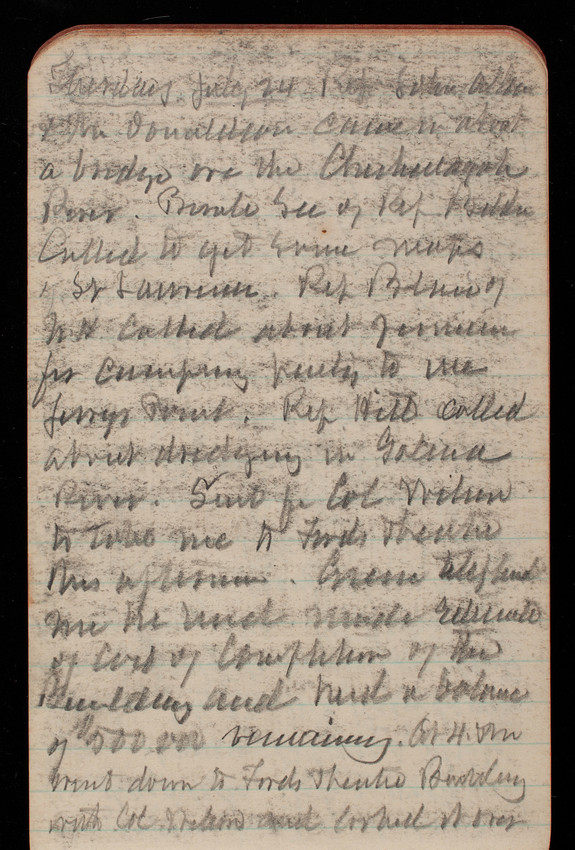 Thursday. July 24. Rep John Allen
& Mr Donaldson came in about
a bridge ove the
River. Private Sec of Rep
Called to get some maps
of St Lawrence. Rep Blair of
N H Called about permission
for camping party to use
Jerrys Point. Rep Hitt called
about dredging in Galena
River. Sent for Col Wilson
to take me to Fords Theatre
this afternoon. Greene telephoned
me he had made Estimate
of Cost of Completion of the
Building and had a balance
of $500 000 remaining. At 4. Pm
went down to Fords Theatre Building
with Col Wilson and looked it over